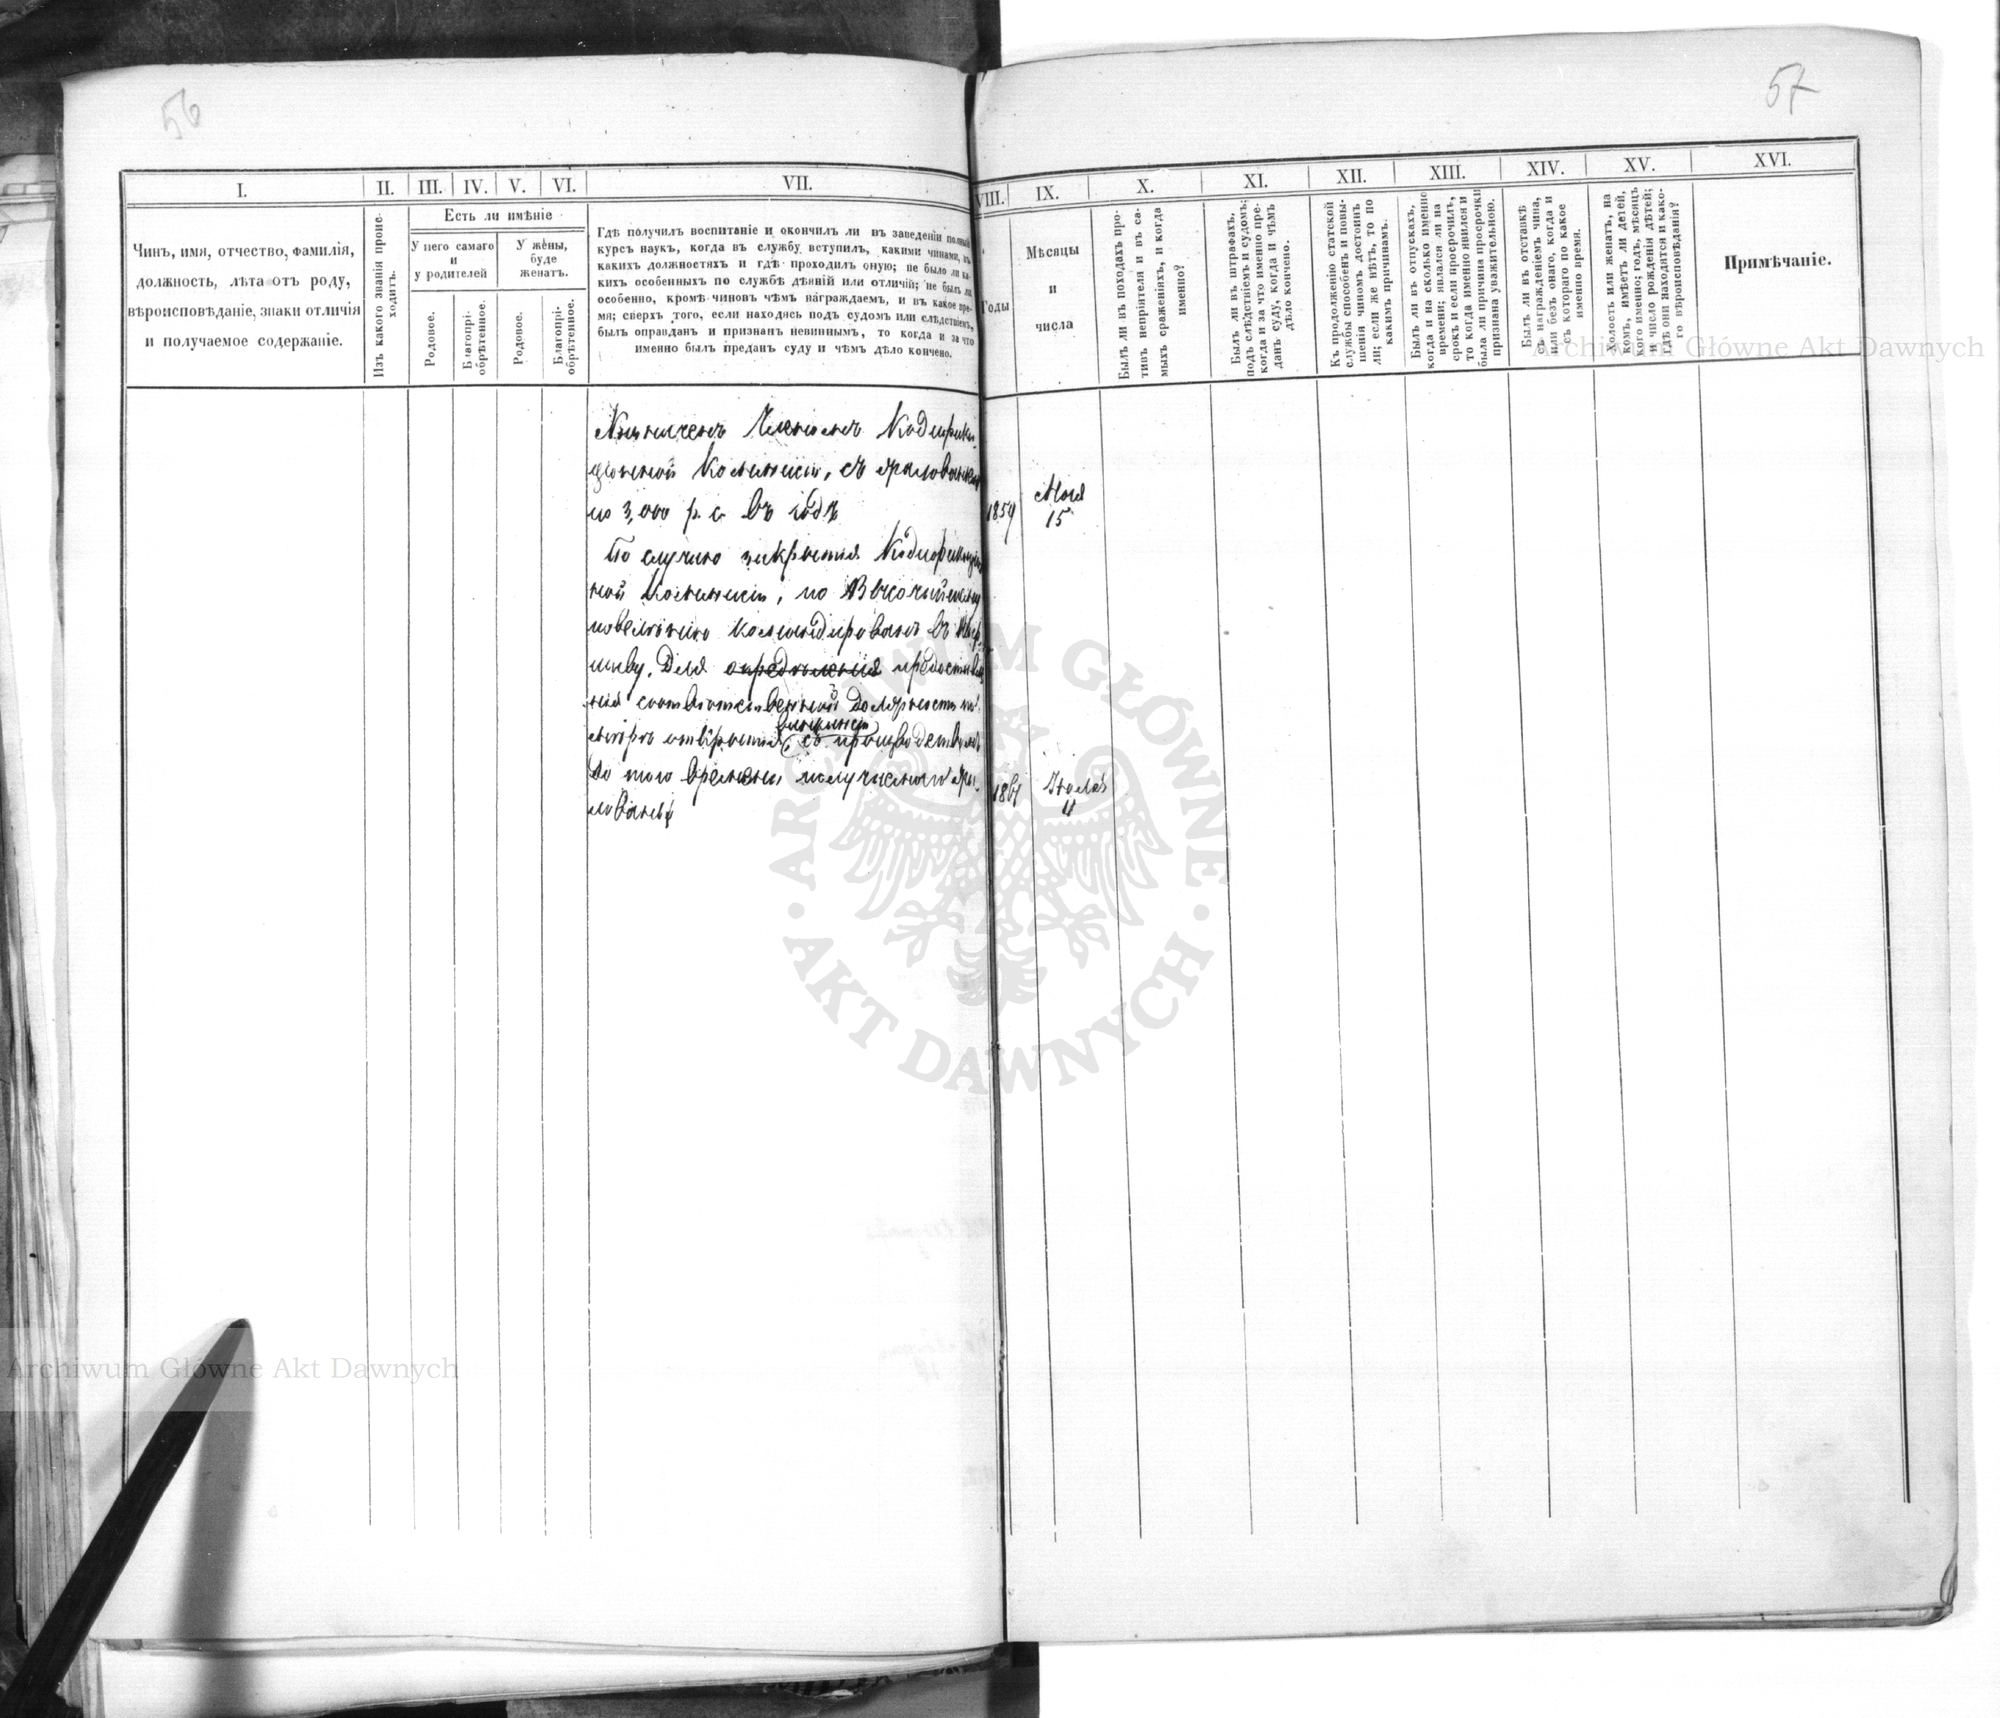 56
57
I.
II.
III.
IV.
V.
VI.
VII.
VIII.
IX.
X.
XI.
XII.
XIII.
XIV.
XV.
XVI.
Чинъ, имя, отчество, фамилія,
должность, лѣта отъ роду,
вѣроисповѣданіе, знаки отличія
и получаемое содержаніе.
Изъ какого званія происходитъ.
Есть ли имѣніе
У него самаго
и
у родителей
У жены,
буде
женатъ.
Родовое.
Благопрі-
обрѣтенное.
Родовое.
Благопрі-
обрѣтенное.
Гдѣ получилъ воспитаніе и окончилъ ли въ заведеніи полный
курсъ наукъ, когда въ службу вступилъ, какими чинами, въ
какихъ должностяхъ и гдѣ проходилъ оную; не было ли ка-
кихъ особенныхъ по службѣ дѣяній или отличій; не былъ ли
особенно, кромѣ чиновъ чѣмъ награждаемъ, и въ какое вре-
мя; сверхъ того, если находясь подъ судомъ или слѣдствіемъ,
былъ оправданъ и признанъ невиннымъ, то когда и за что
именно былъ преданъ суду и чѣмъ дѣло кончено.
Годы
Мѣсяцы
и
числа
Былъ ли въ походахъ про-
тивъ непріятеля и въ са-
мыхъ сраженіяхъ, и когда
именно?
Былъ ли въ штрафахъ,
подъ слѣдствіемъ и судомъ;
когда и за что именно пре-
данъ суду, когда и чѣмъ
дѣло кончено.
Къ продолженію статской
службы способенъ и повы-
шенія чиномъ достоинъ
ли; если же нѣтъ, то по
какимъ причинамъ.
Былъ ли въ отпускахъ,
когда и на сколько именно
времени; являлся ли на
срокъ и если просрочилъ,
то когда именно явился и
была ли причина просрочки
признана уважительною.
Былъ ли въ отставкѣ
съ награжденіемъ чина,
или безъ онаго, когда и
съ котораго по какое
именно время.
Холостъ или женатъ, на
комъ, имѣетъ ли дѣтей,
кого именно; годъ, мѣсяцъ
и число рожденія дѣтей;
гдѣ они находятся и како-
го вѣроисповѣданія?
Примѣчаніе.
Назначенъ Членомъ Кодифика-
ціонной Коммисіи, съ жалованьемъ
по 3,000 р. с. въ годъ
1859
Мая
15
По случаю закрытія Кодификаціон
ной Коммисіи, по Высочайшему
повелѣнію командированъ въ Вар-
шаву, для опредѣленія предоставле
нія соотвѣтственной должности по
открытія вакансіи съ производствомъ
до того времени получаемаго жа-
лованья
1861
Іюля
11
Archiwum Główne Akt Dawnych
Archiwum Główne Akt Dawnych
ARCHIWUM GŁÓWNE · AKT DAWNYCH ·